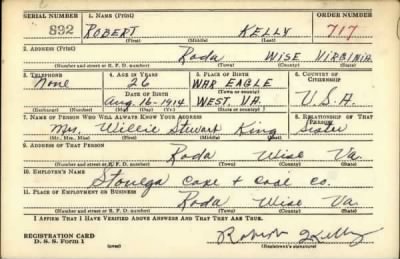 SERIAL NUMBER 1. NAME (Print) ORDER NUMBER
892 ROBERT KELLY 717
(First) (Middle) (Last)
2. ADDRESS (Print)
Roda WISE VIRGINIA
(Number and street or R. F. D. number) (Town) (County) (State)
3. TELEPHONE 4. AGE IN YEARS 5. PLACE OF BIRTH 6. COUNTRY OF CITIZENSHIP
None 26 WAR EAGLE
DATE OF BIRTH (Town or county)
Aug. 16-1914 WEST. VA. U.S.A.
(Exchange) (Number) (Mo.) (Day) (Yr.) (State or country)
7. NAME OF PERSON WHO WILL ALWAYS KNOW YOUR ADDRESS 8. RELATIONSHIP OF THAT PERSON
Mrs. Willie Stewart King Sister
(Mr., Mrs., Miss) (First) (Middle) (Last)
9. ADDRESS OF THAT PERSON
Roda Wise Va.
(Number and street or R. F. D. number) (Town) (County) (State)
10. EMPLOYER'S NAME
Stonega Coke + Coal Co.
11. PLACE OF EMPLOYMENT OR BUSINESS
Roda Wise Va.
(Number and street or R. F. D. number) (Town) (County) (State)
I AFFIRM THAT I HAVE VERIFIED ABOVE ANSWERS AND THAT THEY ARE TRUE.
Robert Kelly
REGISTRATION CARD
D. S. S. Form 1 (over) (Registrant's signature)